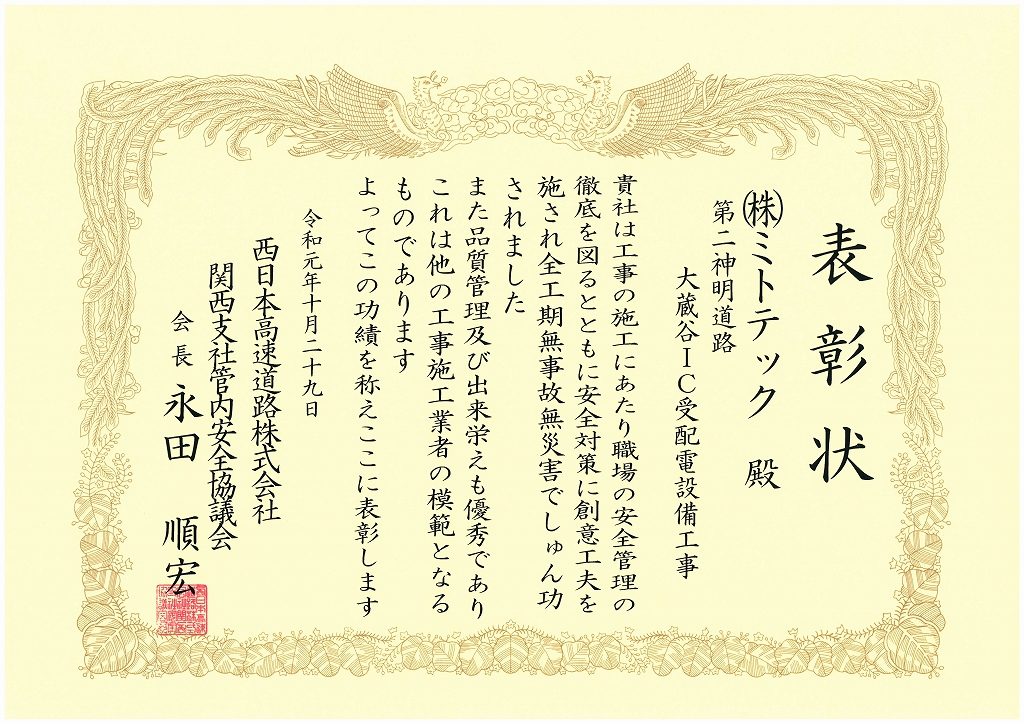 表彰状
㈱ミトテック 殿
第二神明道路
大蔵谷IC受配電設備工事
貴社は工事の施工にあたり職場の安全管理の
徹底を図るとともに安全対策に創意工夫を
施され全工期無事故無災害でしゅん功
されました
また品質管理及び出来栄えも優秀であり
これは他の工事施工業者の模範となる
ものであります
よってこの功績を称えここに表彰します
令和元年十月二十九日
西日本高速道路株式会社
関西支社管内安全協議会
会長 永田 順宏